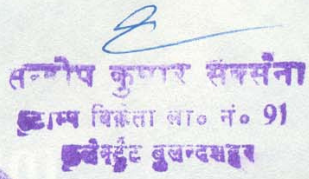 सन्दीप कुमार सक्सैना
स्टाम्प विक्रेता ला० नं० 91
कलेक्ट्रेट बुलन्दशहर